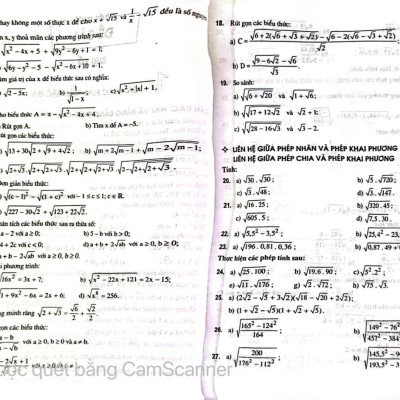 hay không một số thực x để cho x + √15 và 1/x − √15 đều là số nguyên
x, y thoả mãn các phương trình sau:
√(x² − 4x + 5) + √(9y² − 6y + 1) = 1;
√(6y − y² − 5) − √(x² − 6x + 10) = 1.
giá trị của x để biểu thức sau có nghĩa:
√(2 − 5x); b) √(1/(1 − x)) √(x² + |x| + 1).
ho biểu thức: A = x − √(x² − 4x + 4).
Rút gọn A. b) Tìm x để A = −5.
út gọn các biểu thức:
√(13 + 30√(2 + √(9 + 4√2))); b) √(m + 2√(m − 1)) + √(m − 2√(m − 1));
√(2 + √3).√(2 + √(2 + √3)).√(2 + √(2 + √(2 + √3))).√(2 − √(2 + √(2 + √3)))
ơn giản biểu thức:
√((c − 1)²) − √((1 + c)²) với −1 ≤ c ≤ 1; c ∈ R.
√(227 − 30√2) + √(123 + 22√2).
hân tích các biểu thức sau ra thừa số:
a − 2 với a ≥ 0; b) 5 − b với b > 0;
4 + 2c với c < 0; d) a + b + 2√ab với a ≥ 0, b ≥ 0;
a + b − 2√ab với a ≥ 0, b ≥ 0.
i phương trình:
√(16x²) = 3x + 7; b) √(x² − 22x + 121) = 2x − 15;
√(1 + 9x² − 6x) = 2x + 6; d) √(x⁸) = 256.
ng minh rằng √(2 + √3) = √6/2 + √2/2
gọn các biểu thức:
(a − b)/(√a − √b) với a ≥ 0, b ≥ 0 và a ≠ b.
− 2√x + 1 với x ≥ 0 và x ≠
ợc quét bằng CamScanner
18. Rút gọn các biểu thức:
a) C = √(6 + 2(√6 + √3 + √2)) − √(6 − 2(√6 − √3 + √2));
b) D = (√(9 − 6√2) − √6)/√3
19. So sánh:
a) √(√6 + √20) và √(1 + √6);
b) √(√(17 + 12√2)) và √2 + 1;
c) √(√(28 − 16√3)) và √3 − 2.
LIÊN HỆ GIỮA PHÉP NHÂN VÀ PHÉP KHAI PHƯƠNG
LIÊN HỆ GIỮA PHÉP CHIA VÀ PHÉP KHAI PHƯƠNG
Tính:
20. a) √30.√30; b) √5.√720;
c) √3.√48; d) √3.√147.
21. a) √(16.25); b) √(320.45);
c) √(605.5); d) √(7,5.30).
22. a) √(5,5² − 3,5²); b) √(25,4² − 23,
23. a) √(196.0,81.0,36); b) √(0,87.49 +
Thực hiện các phép tính sau:
24. a) √(25.100); b) √(19,6.90); c) √(5².2²);
e) √11.√176; g) √2.√72; h) √75.√3.
25. a) (2√2 − √5 + 3√2)(√18 − √20 + 2√2);
b) (1 + √2 − √5)(1 + √2 + √5).
26. a) √((165² − 124²)/164); b) √((149² − 76²)/(457² − 384²
27. a) √(200/(176² − 112²)) b) √((145,5² −/(193,5² −